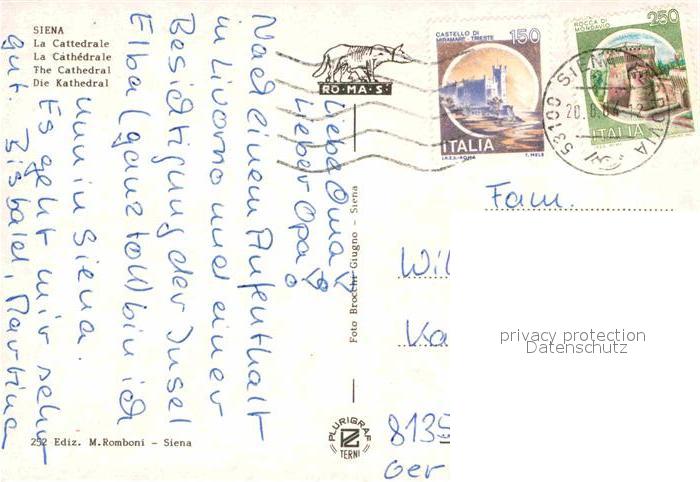 SIENA
La Cattedrale
La Cathédrale
The Cathedral
Die Kathedral
Liebe Oma
Lieber Opa
Nach einem Aufenthalt
in Livorno und einer
Besichtigung der Insel
Elba (ganz toll) bin ich
nun in Siena.
Es geht mir sehr
gut. Bis bald, Martina
252 Ediz. M.Romboni - Siena
RO·MA·S·
Foto Brocchi Giugno - Siena
PLURIGRAF
TERNI
CASTELLO DI
MIRAMARE - TRIESTE
150
ITALIA
I.P.Z.S.-ROMA
T. MELE
ROCCA DI
MONDAVIO
250
ITALIA
53100 SIENA FERROVIA
Fam.
Wil
Ka
8135
Ger
privacy protection
Datenschutz